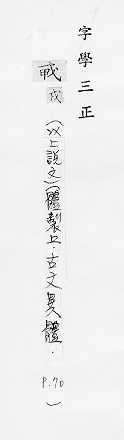 字學三正
戒
戒
(以上說文)(體製上·古文異體·P.70)